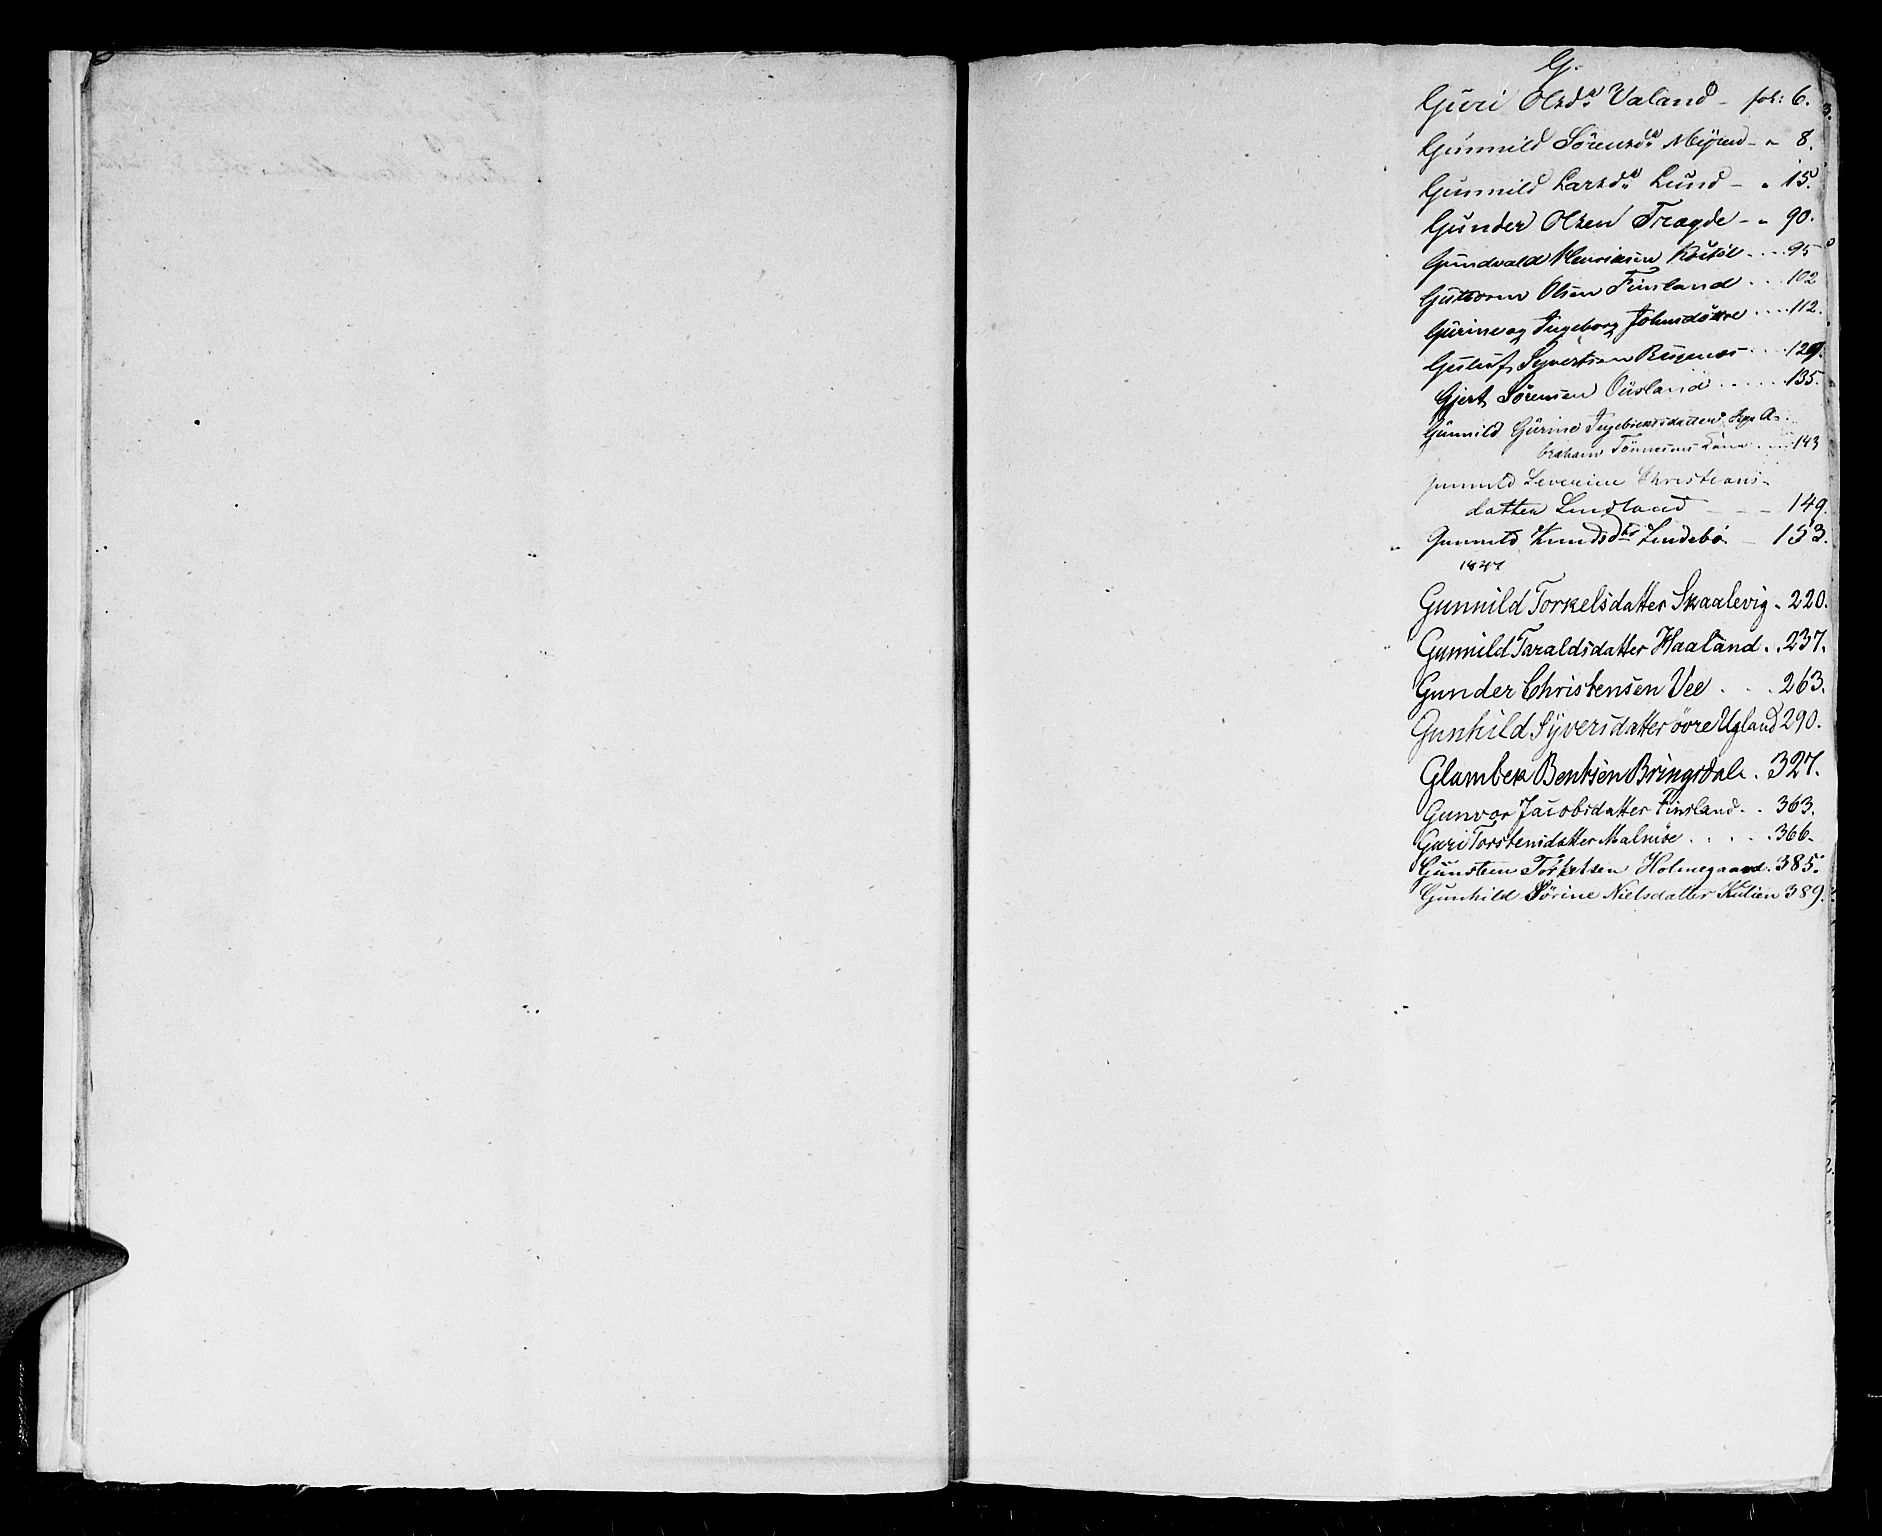 G.
Guri Olsdr Valand - fol: 6.
Gunnild Sørensdr Myren - " 8.
Gunnild Larsdr Lund - " 15.
Gunder Olsen Tragde - " 90.
Gundvald Henriksen .... 95
Guttorm Olsen Finland ... 102
Gurine og Ingeborg Johnsdøttre .... 112.
Gutluf Syvertsen .... 129.
Gjert Sørensen Ousland ...... 135.
Gunnild Gurine Ingebretsdatter A-
braham Tønnesens Kone .... 143
Gunnild Severine Christians-
datter Lindland - - - 149.
Gunnild Knudsdtr Lindebö - 153.
1847
Gunnild Torkelsdatter Skaalevig . 220.
Gunnild Taraldsdatter Haaland . . 237.
Gunder Christensen Vee . . . 263.
Gunhild Syversdatter övre Ugland 290.
Glambek Bentsen Bringsdal . 327.
Gunvor Jacobsdatter Finsland . . 363.
Guri Torstensdatter Malmöe . . . . . 366.
Gunsteen Torkelsen Holmegaard . 385.
Gunhild Sørine Nielsdatter Kulien 389.